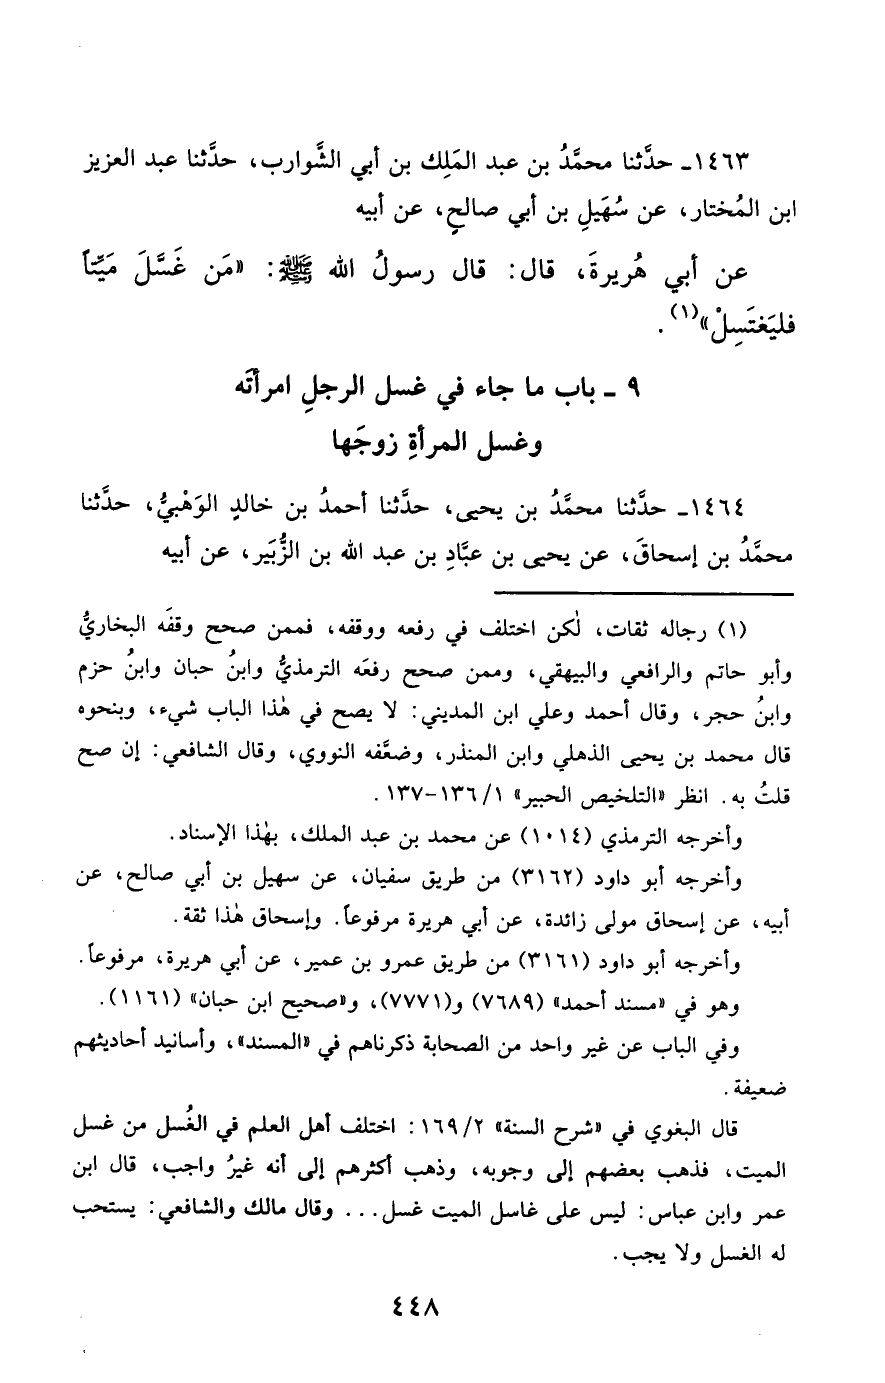 ١٤٦٣ـ حدَّثنا محمَّدُ بن عبد المَلِك بن أبي الشَّوارب، حدَّثنا عبد العزيز
ابن المُختار، عن سُهَيلِ بن أبي صالحٍ، عن أبيه
عن أبي هُريرةَ، قال: قال رسولُ الله ﷺ: «مَن غَسَّلَ مَيِّتاً
فليَغتَسِلْ»(١).
٩ ـ باب ما جاء في غسل الرجلِ امرأتَه
وغسل المرأةِ زوجَها
١٤٦٤ـ حدَّثنا محمَّدُ بن يحيى، حدَّثنا أحمدُ بن خالدٍ الوَهْبيُّ، حدَّثنا
محمَّدُ بن إسحاقَ، عن يحيى بن عبَّادِ بن عبد الله بن الزُّبَير، عن أبيه
(١) رجاله ثقات، لٰكن اختلف في رفعه ووقفه، فممن صحح وقفَه البخاريُّ
وأبو حاتم والرافعي والبيهقي، وممن صحح رفعَه الترمذيُّ وابنُ حبان وابنُ حزم
وابنُ حجر، وقال أحمد وعلي ابن المديني: لا يصح في هٰذا الباب شيء، وبنحوه
قال محمد بن يحيى الذهلي وابن المنذر، وضعَّفه النووي، وقال الشافعي: إن صح
قلتُ به. انظر «التلخيص الحبير» ١/ ١٣٦-١٣٧.
وأخرجه الترمذي (١٠١٤) عن محمد بن عبد الملك، بهٰذا الإسناد.
وأخرجه أبو داود (٣١٦٢) من طريق سفيان، عن سهيل بن أبي صالح، عن
أبيه، عن إسحاق مولى زائدة، عن أبي هريرة مرفوعاً. وإسحاق هٰذا ثقة.
وأخرجه أبو داود (٣١٦١) من طريق عمرو بن عمير، عن أبي هريرة، مرفوعاً.
وهو في «مسند أحمد» (٧٦٨٩) و(٧٧٧١)، و«صحيح ابن حبان» (١١٦١).
وفي الباب عن غير واحد من الصحابة ذكرناهم في «المسند»، وأسانيد أحاديثهم
ضعيفة.
قال البغوي في «شرح السنة» ٢/ ١٦٩: اختلف أهل العلم في الغُسل من غسل
الميت، فذهب بعضهم إلى وجوبه، وذهب أكثرهم إلى أنه غيرُ واجب، قال ابن
عمر وابن عباس: ليس على غاسل الميت غسل... وقال مالك والشافعي: يستحب
له الغسل ولا يجب.
٤٤٨